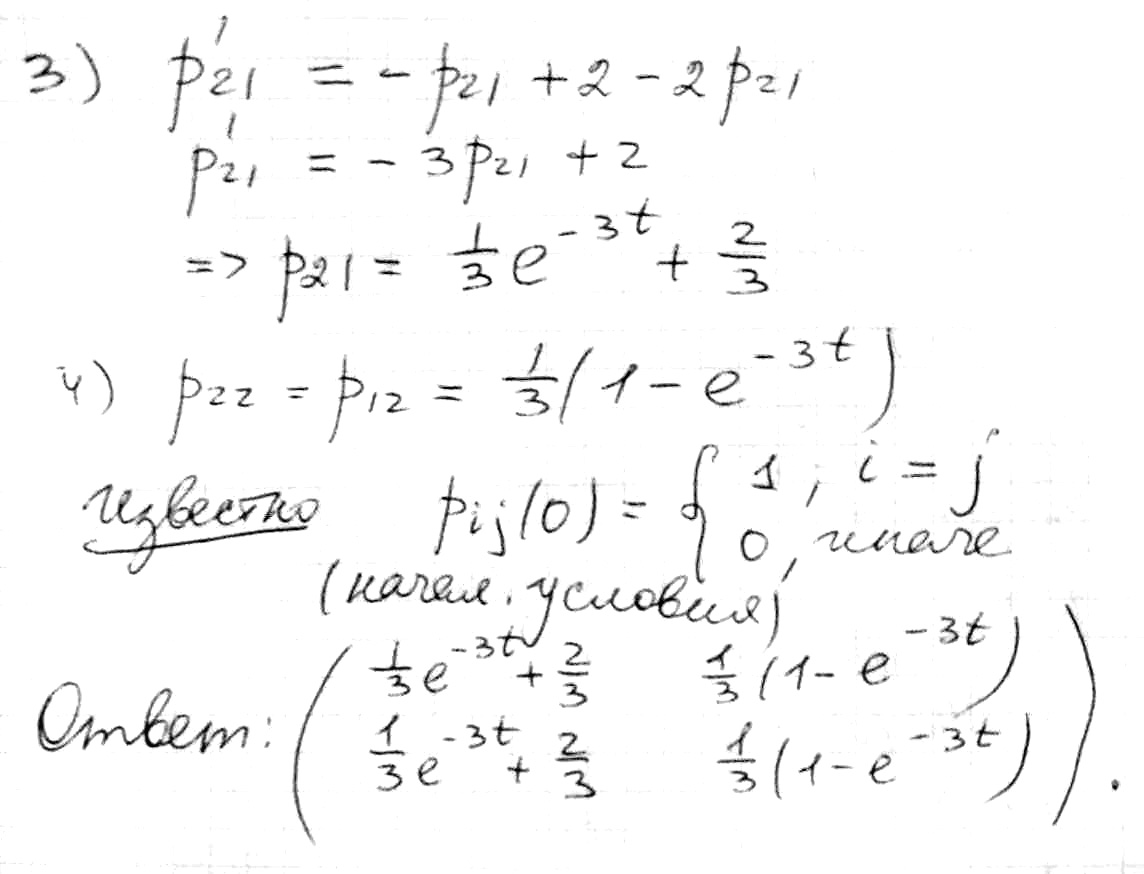 3) p'₂₁ = -p₂₁ + 2 - 2p₂₁
p'₂₁ = -3p₂₁ + 2
=> p₂₁ = 1/3 e^(-3t) + 2/3
4) p₂₂ = p₁₂ = 1/3 (1 - e^(-3t))
известно pᵢⱼ(0) = { 1, i = j
0, иначе
(начал. условия)
Ответ: ( 1/3 e^(-3t) + 2/3 1/3 (1 - e^(-3t))
1/3 e^(-3t) + 2/3 1/3 (1 - e^(-3t)) ).